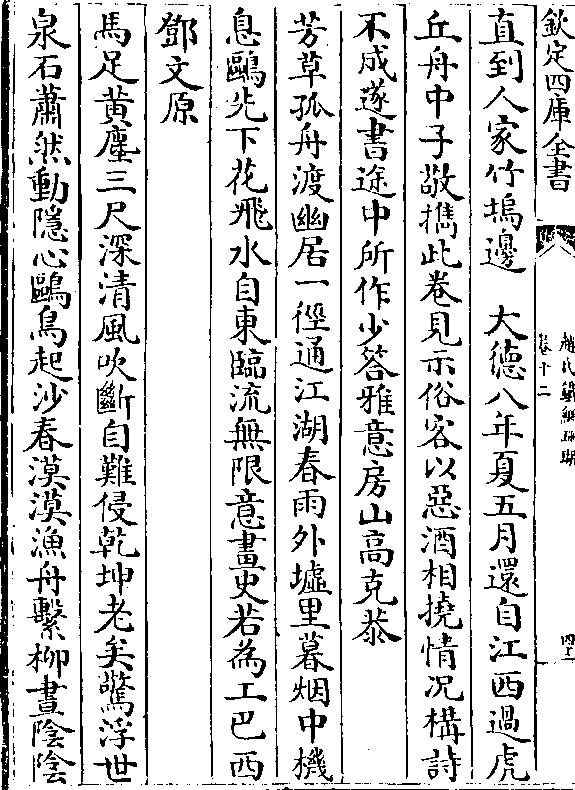 欽定四庫全書
趙氏鐵網珊瑚
卷十二
直到人家竹塢邊　大德八年夏五月還自江西過虎
丘舟中子敬攜此卷見示俗客以惡酒相撓情況構詩
不成遂書途中所作少答雅意房山高克恭
芳草孤舟渡幽居一徑通江湖春雨外墟里暮烟中機
息鷗先下花飛水自東臨流無限意畫史若為工巴西
鄧文原
馬足黃塵三尺深清風吹斷自難侵乾坤老矣驚浮世
泉石蕭然動隱心鷗鳥起沙春漠漠漁舟繫柳晝陰陰